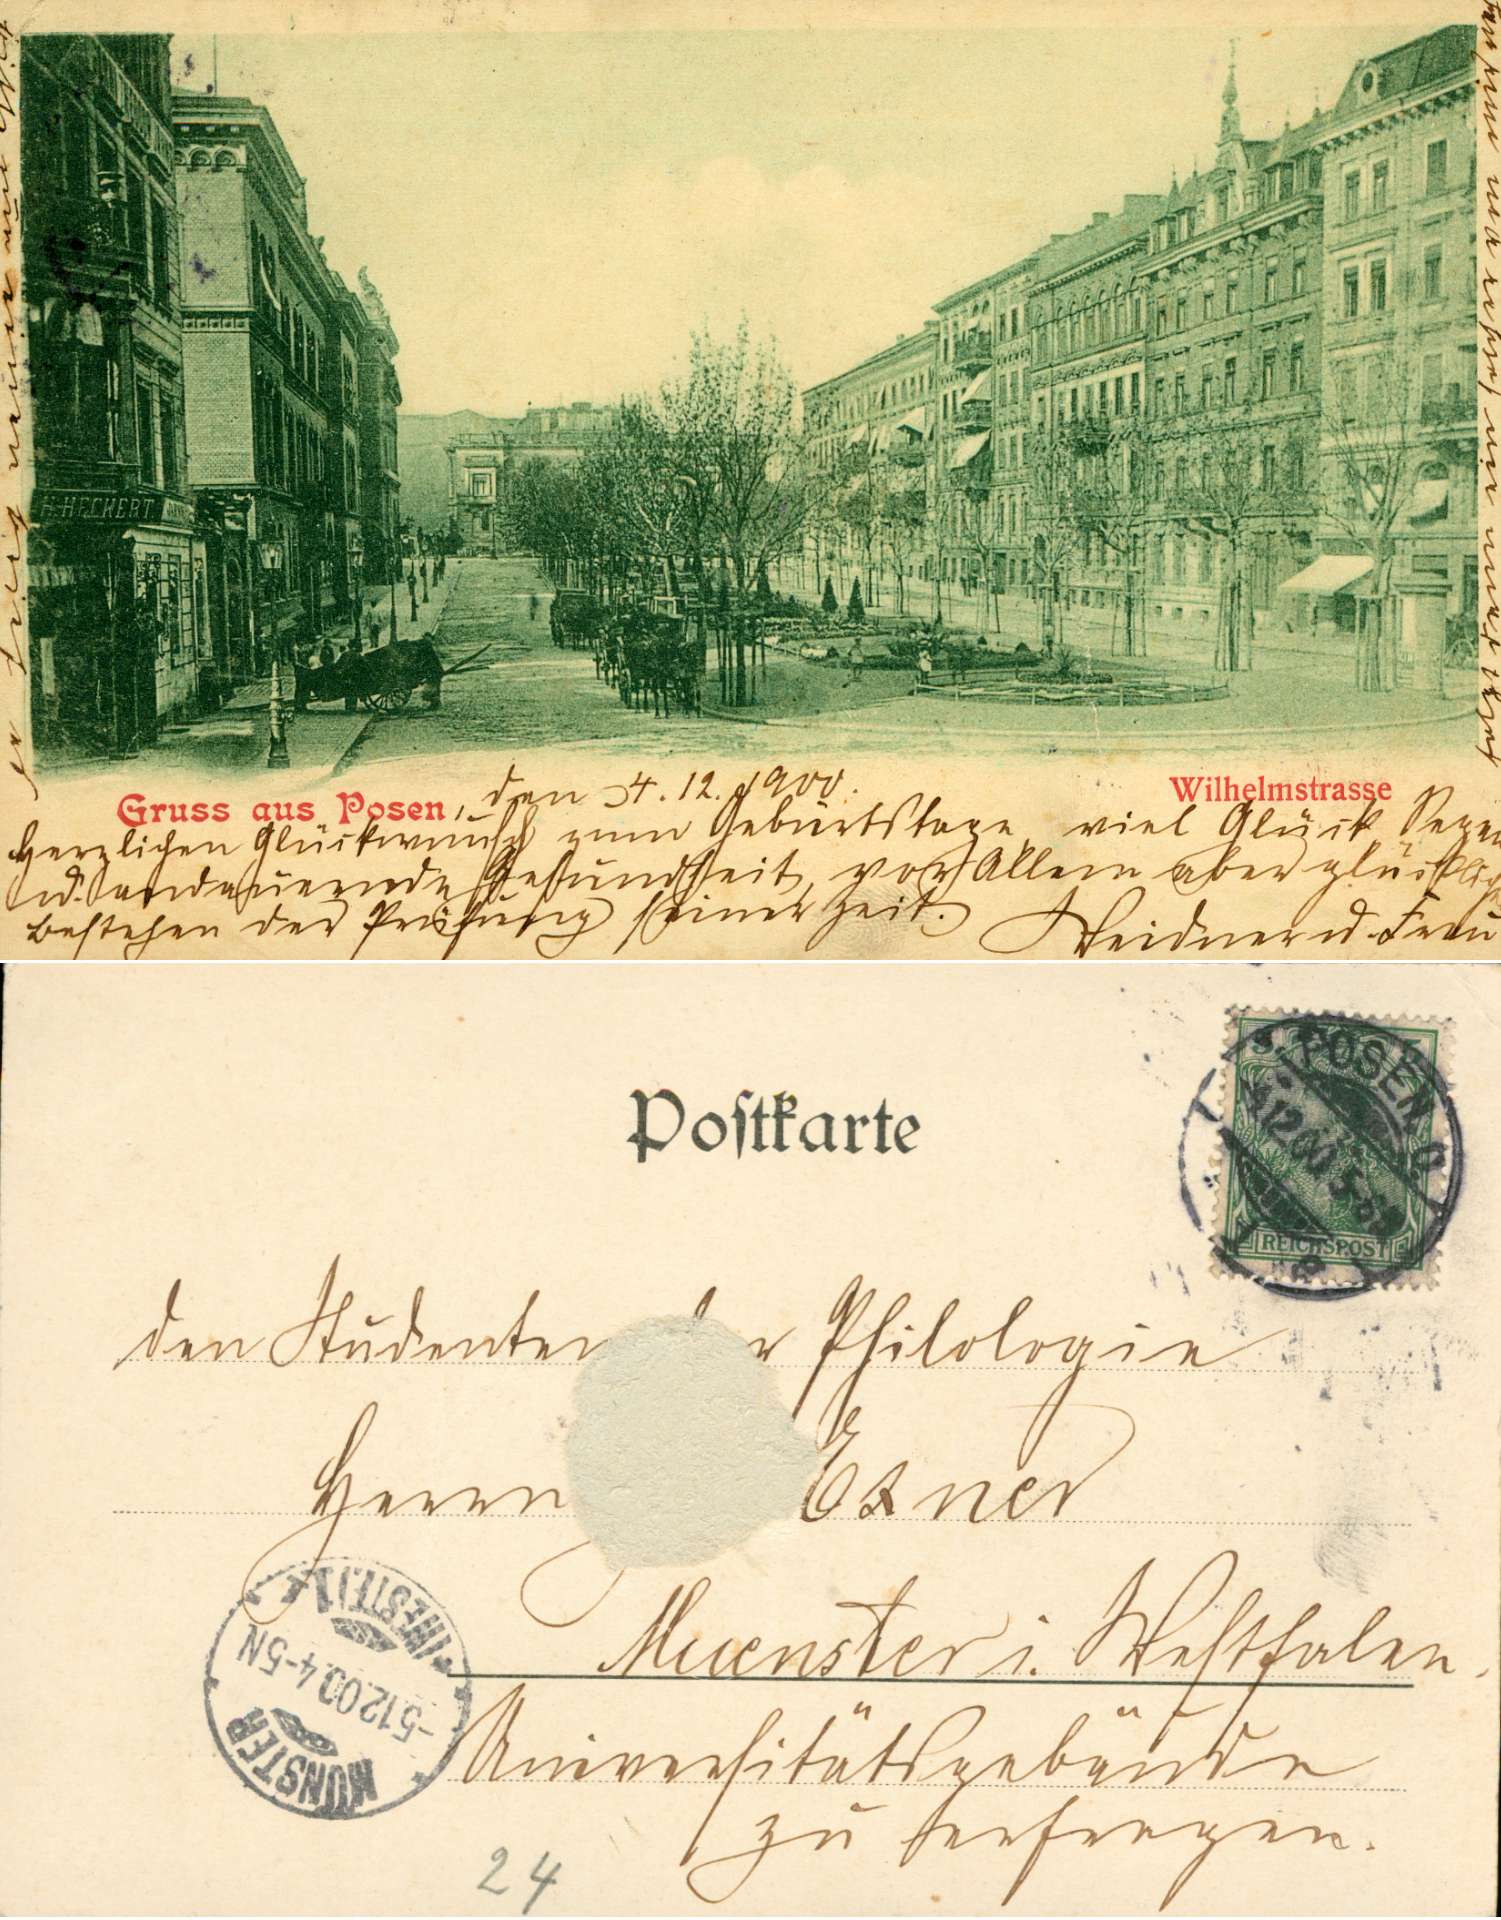 H. HECKERT
Gruss aus Posen, den 4.12.1900.
Wilhelmstrasse
Herzlichen Glückwunsch zum Geburtstage, viel Glück Segen
u. andauernde Gesundheit, vor Allem aber glücklich
bestehen der Prüfung seiner Zeit.
Weidner u. Frau
Postkarte
POSEN O.
4.12.00 5-6N
REICHSPOST
den Studenten der Philologie
Herrn Exner
Muenster i. Westfalen.
Universitätsgebäude
zu erfragen.
MÜNSTER
-5.12.00.4-5N
(WESTF.) 1
24